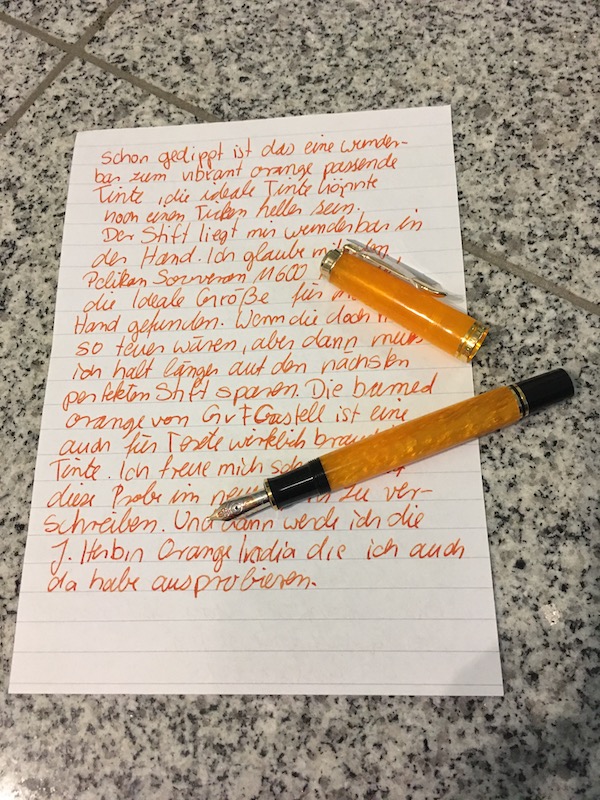 schon gedippt ist das eine wunder-
bar zum vibrant orange passende
Tinte, die ideale Tinte könnte
noch einen Ticken heller sein.
Der Stift liegt mir wunderbar in
der Hand. Ich glaube mit
Pelikan Souverän M600
die Ideale Größe für
Hand gefunden. Wenn die doch
so teuer wären, aber dann muss
ich halt länger auf den nächsten
perfekten Stift sparen. Die burned
orange von GvFCastell ist eine
auch für Texte wirklich
Tinte. Ich freue mich
diese Probe im zu ver-
schreiben. Und dann werde ich die
J. Herbin Orange India die ich auch
da habe ausprobieren.